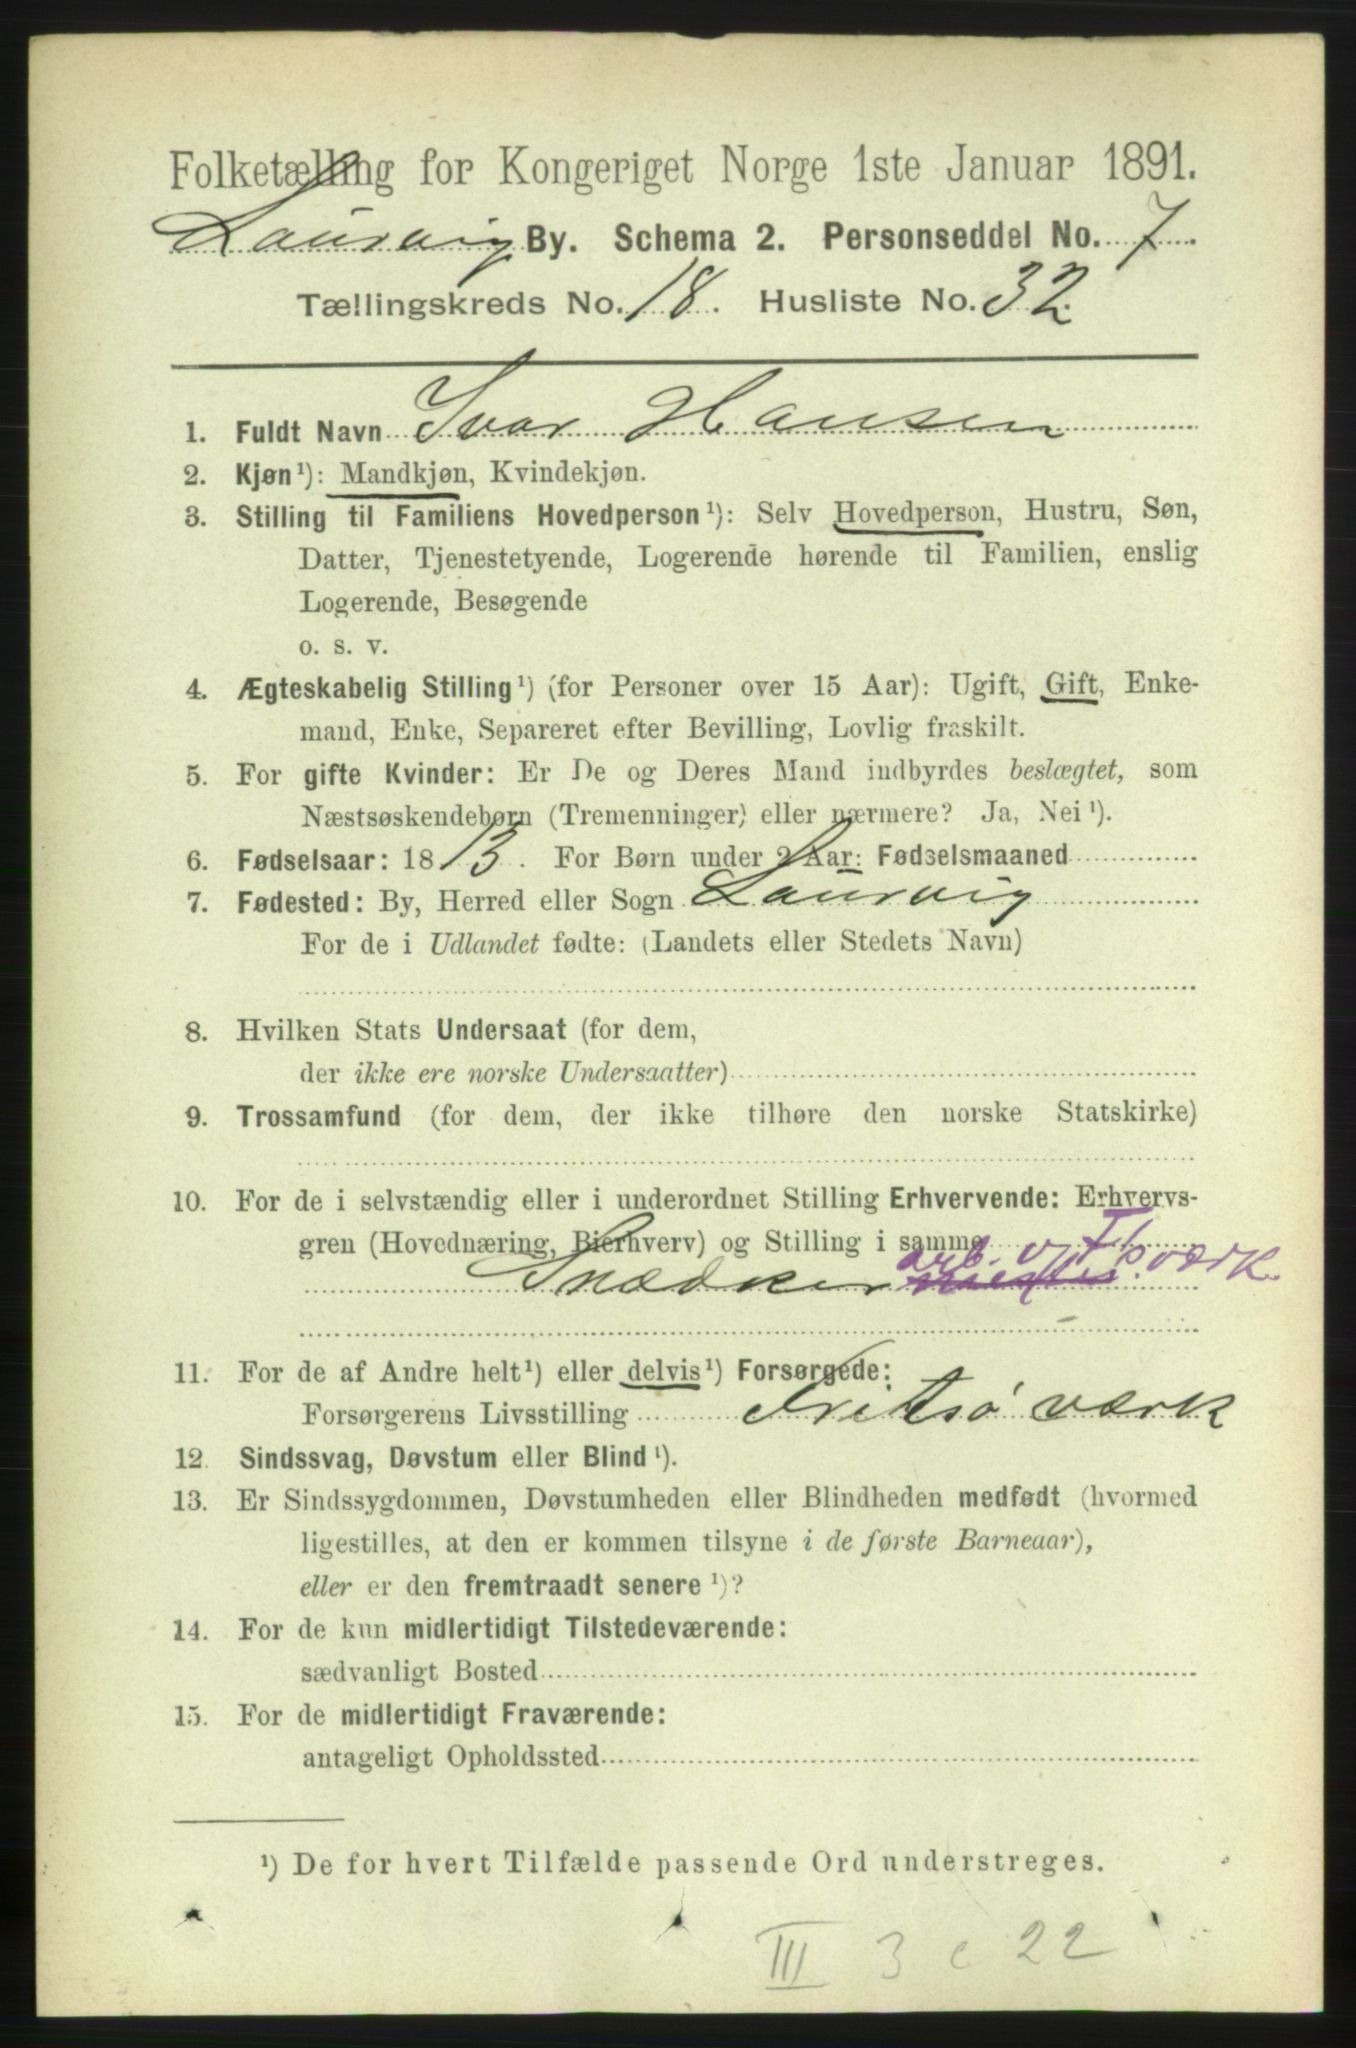 Folketælling for Kongeriget Norge 1ste Januar 1891.
Laurvig By. Schema 2. Personseddel No. 7
Tællingskreds No. 18. Husliste No. 32.
1. Fuldt Navn Ivar Hansen
2. Kjøn¹): Mandkjøn, Kvindekjøn.
3. Stilling til Familiens Hovedperson¹): Selv Hovedperson, Hustru, Søn,
Datter, Tjenestetyende, Logerende hørende til Familien, enslig
Logerende, Besøgende
o. s. v.
4. Ægteskabelig Stilling¹) (for Personer over 15 Aar): Ugift, Gift, Enke-
mand, Enke, Separeret efter Bevilling, Lovlig fraskilt.
5. For gifte Kvinder: Er De og Deres Mand indbyrdes beslægtet, som
Næstsøskendebørn (Tremenninger) eller nærmere? Ja, Nei¹).
6. Fødselsaar: 1813. For Børn under 2 Aar: Fødselsmaaned
7. Fødested: By, Herred eller Sogn Laurvig
For de i Udlandet fødte: (Landets eller Stedets Navn)
8. Hvilken Stats Undersaat (for dem,
der ikke ere norske Undersaatter)
9. Trossamfund (for dem, der ikke tilhøre den norske Statskirke)
10. For de i selvstændig eller i underordnet Stilling Erhvervende: Erhvervs-
gren (Hovednæring, Bierhverv) og Stilling i samme
Snedker arb. v. værk.
11. For de af Andre helt¹) eller delvis¹) Forsørgede:
Forsørgerens Livsstilling Fritsø værk
12. Sindssvag, Døvstum eller Blind¹).
13. Er Sindssygdommen, Døvstumheden eller Blindheden medfødt (hvormed
ligestilles, at den er kommen tilsyne i de første Barneaar),
eller er den fremtraadt senere¹)?
14. For de kun midlertidigt Tilstedeværende:
sædvanligt Bosted
15. For de midlertidigt Fraværende:
antageligt Opholdssted
¹) De for hvert Tilfælde passende Ord understreges.
III 3 c 22